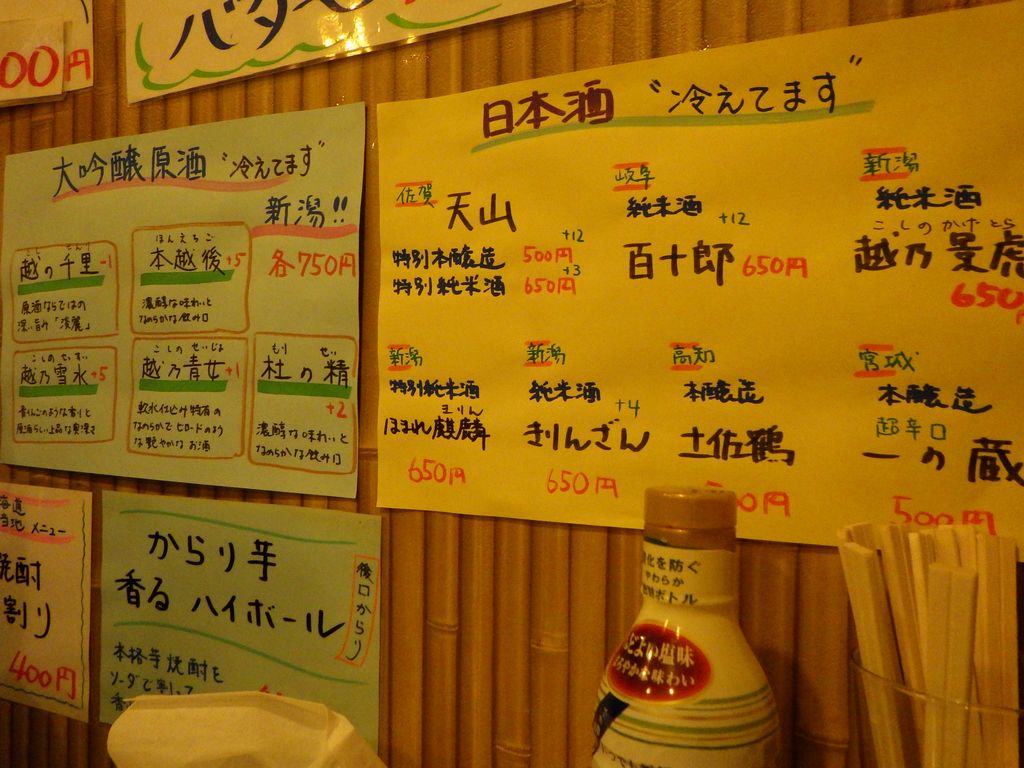 00円
バター
大吟醸原酒 "冷えてます"
新潟!!
各750円
こし せんり
越の千里-1
原酒ならではの
深い旨み「淡麗」
ほんえちご
本越後+5
濃醇な味わいと
なめらかな飲み口
こしの せっすい
越乃雪水+5
青りんごのような香りと
原酒らしい上品な奥深さ
こしの せいじょ
越乃青女+1
軟水仕込み特有の
なめらかでビロードのよう
な艶やかなお酒
もり せい
杜の精
+2
濃醇な味わいと
なめらかな飲み口
日本酒 "冷えてます"
佐賀
天山
特別本醸造 +12 500円
特別純米酒 +3 650円
岐阜
純米酒 +12
百十郎 650円
新潟
純米酒
こしのかげとら
越乃景虎
650円
新潟
特別純米酒
きりん
ほまれ麒麟
650円
新潟
純米酒
+4
きりんざん
650円
高知
本醸造
土佐鶴
00円
宮城
本醸造
超辛口
一の蔵
500円
海道
当地メニュー
焼酎
割り
400円
からり芋
香る ハイボール
後口からり
本格芋焼酎を
ソーダで割って
香
化を防ぐ
やわらか
ボトル
どよい塩味
ろやかな味わい